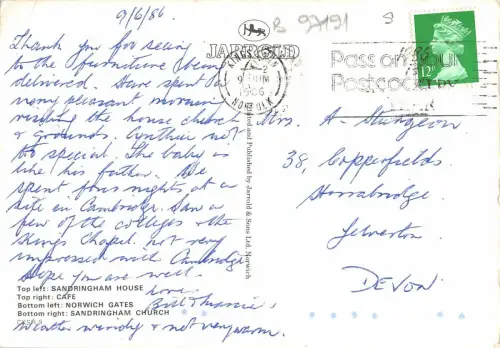 9/6/86.
Thank you for seeing
to the furniture being
delivered. Have spent a
very pleasant morning
visiting the house church
& grounds. Cynthia not
too special. The baby is
like his father. We
spent four nights at a
site in Cambridge. Saw a
few of the colleges & the
Kings Chapel. not very
impressed with Cambridge
Hope you are well.
love.
Bill & Marie.
Weather windy & not very warm.
Top left: SANDRINGHAM HOUSE
Top right: CAFE
Bottom left: NORWICH GATES
Bottom right: SANDRINGHAM CHURCH
B 97191
JARROLD
and Published by Jarrold & Sons Ltd, Norwich
1986
NORFOLK
Pass on your
Postcode
12P
Mrs. A. Sturgeon
38, Copperfields
Horrabridge,
Yelverton
DEVON